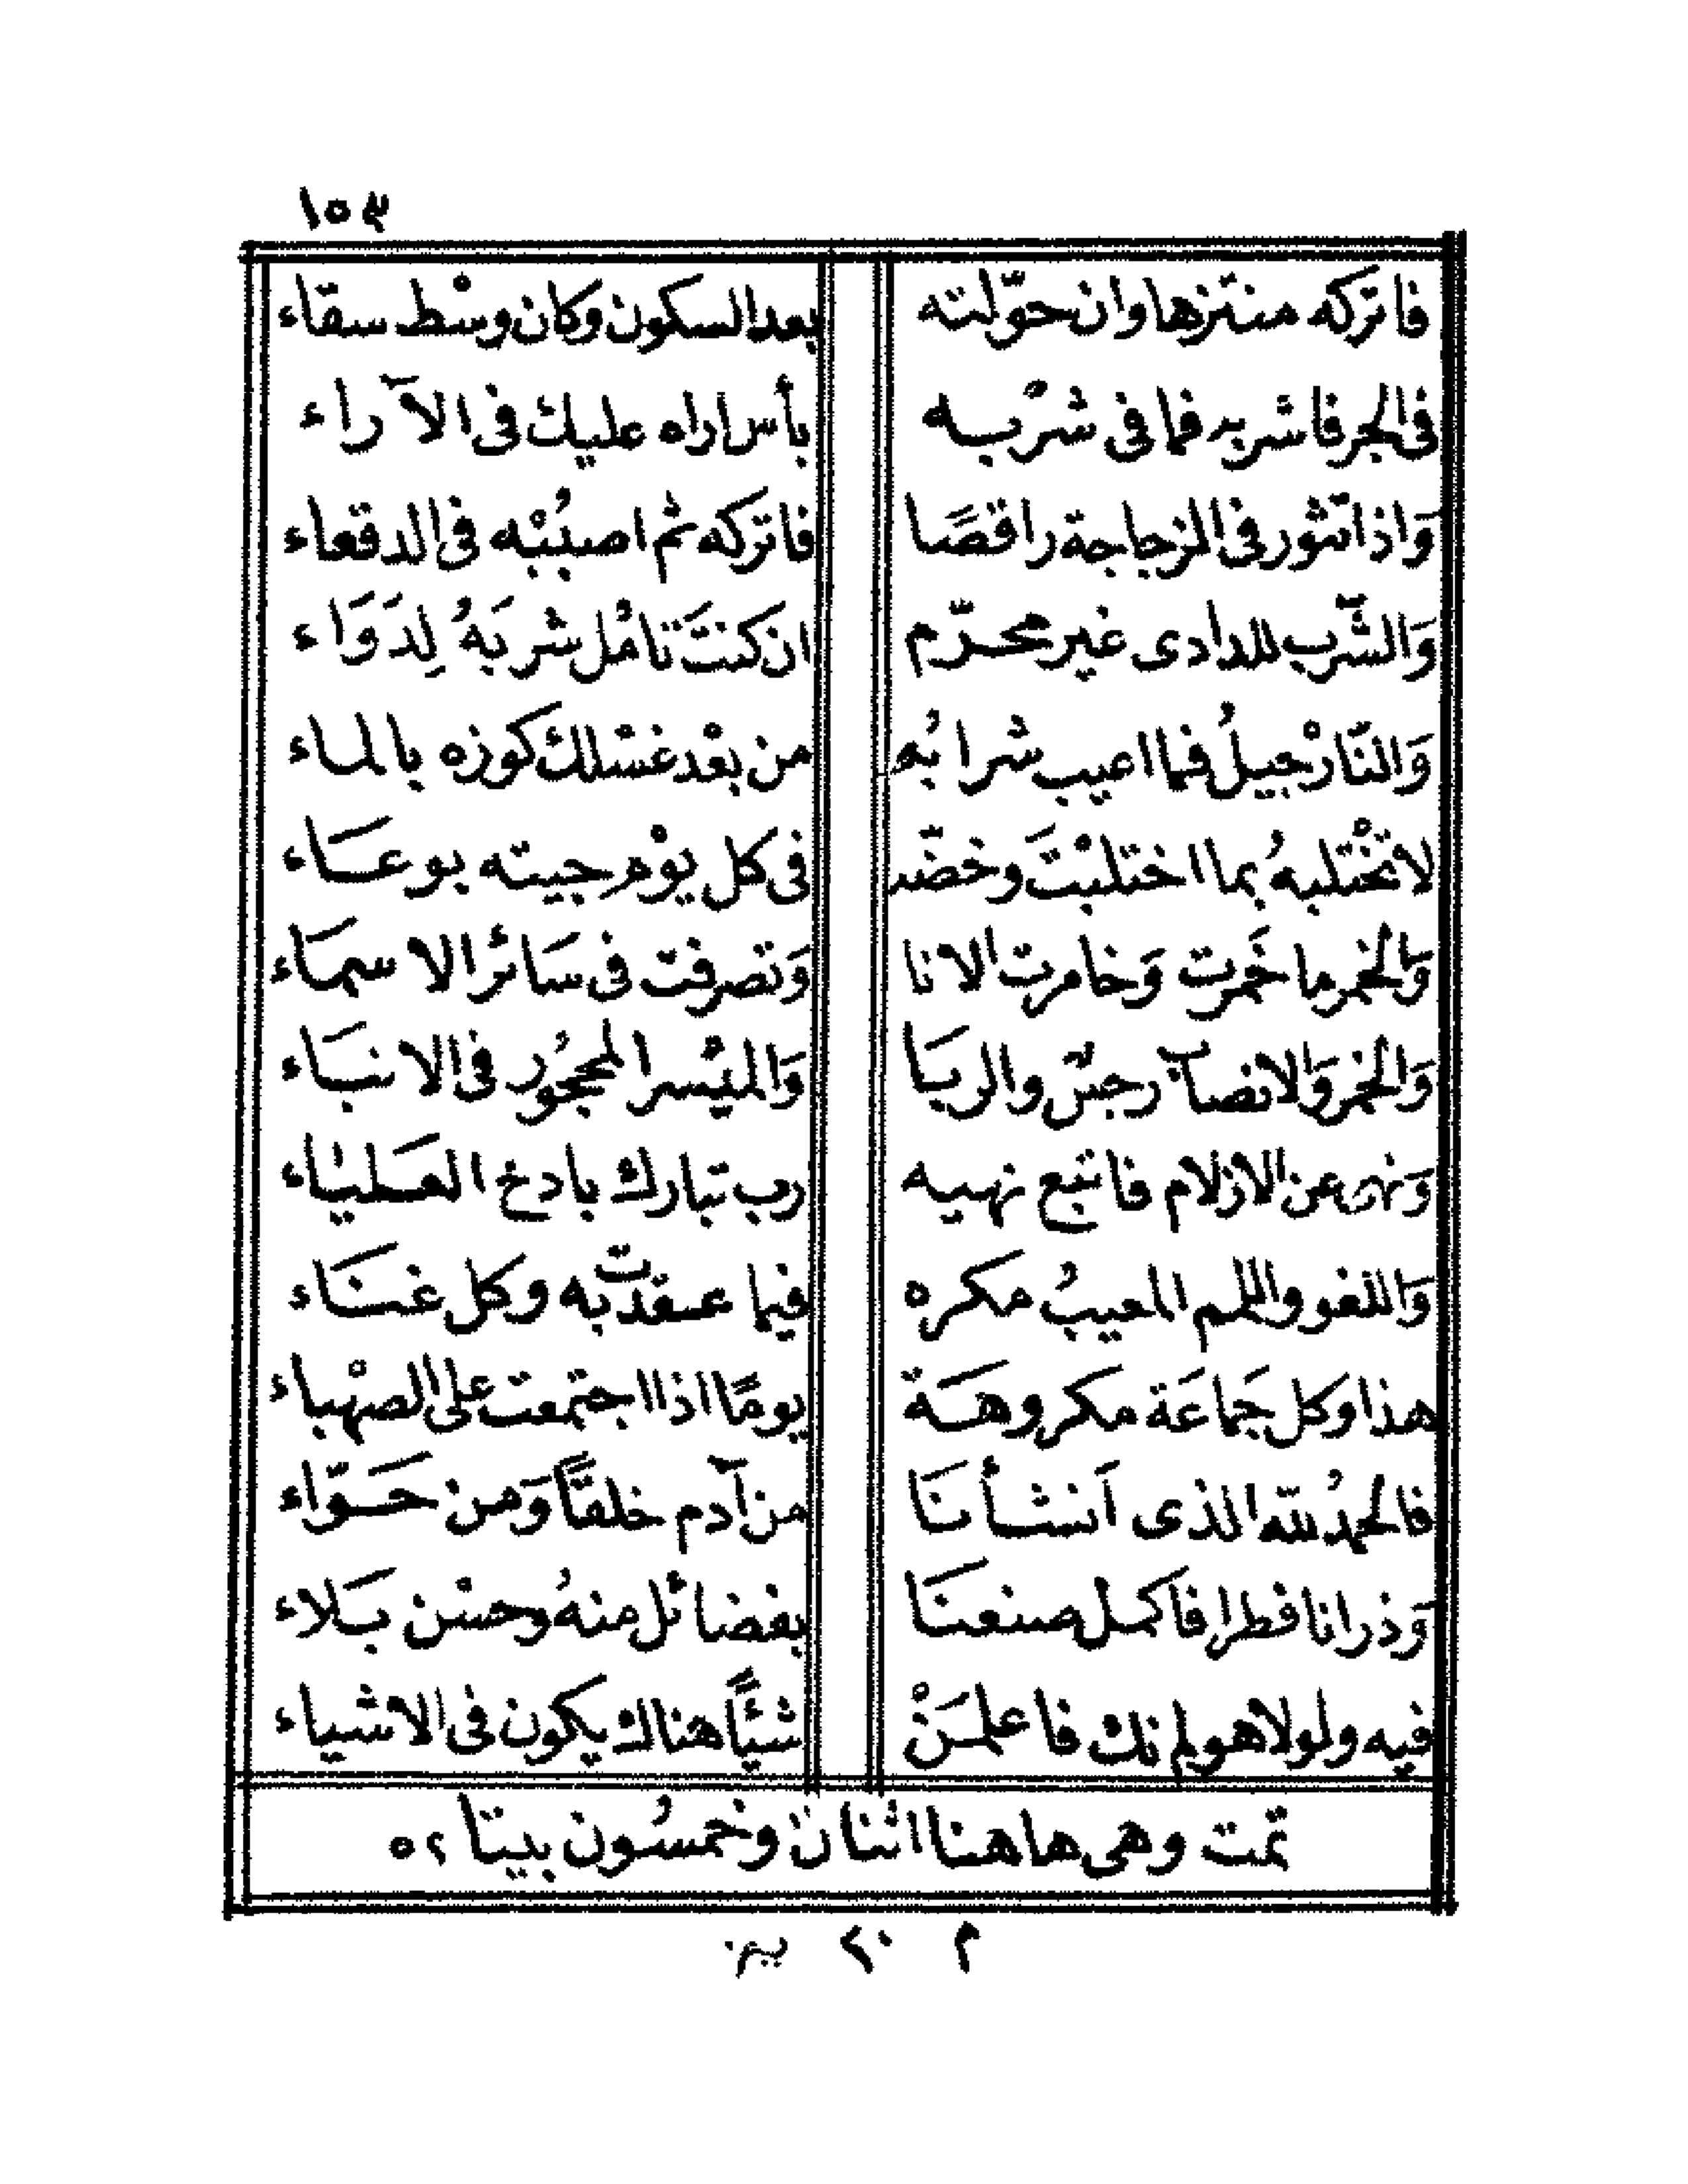 ١٥٣
فاتركه منتزها وان حوّلته بعد السكون وكان وسْط سقّاء
فى الجر فاشربه فما فى شرْبه بأس اراه عليك فى الآراء
وَاذا تثور فى الزجاجة راقصًا فاتركه ثم اصببْه فى الدقعاء
وَالشّرب للدادى غير محرّم ان كنتَ تامُل شربَهُ لِدَوَاء
وَالنّارْجيلُ فما اعيب شرابُه من بعْد غسْلك كوزه بالماء
لا تخْتلبهُ بما اختلبْتَ وخضّه فى كل يوْم جيته بوعَاء
وَالخمر ما خَمرت وَخامرت الانا وَتصرفت فى سَائر الاسمَاء
وَالخمر وَالانصاب رجسٌ والربَا وَالميْسر المحجُور فى الانبَاء
وَنهى عن الازلام فاتبع نهيه رب تبارك باذخ العَليَاء
وَاللغو واللمم المعيبُ مكره فيما عقدت به وكل غنَاء
هذا وكل جَماعَة مكروهَة يومًا اذا اجتمعت على الصهْباء
فالحمدُ لله الذى اَنشأنَا من آدم خلقًا وَمن حَوّاء
وَذرانا فطرا فاَكمل صنعنَا بفضائل منهُ وحسْن بَلاء
فيه ولولا هو لم نك فاعلمَنْ شيئًا هناك يكون فى الاشياء
تمت وهى هاهنا اثنان وخمسُون بيتا ٥٢
م ٢٠